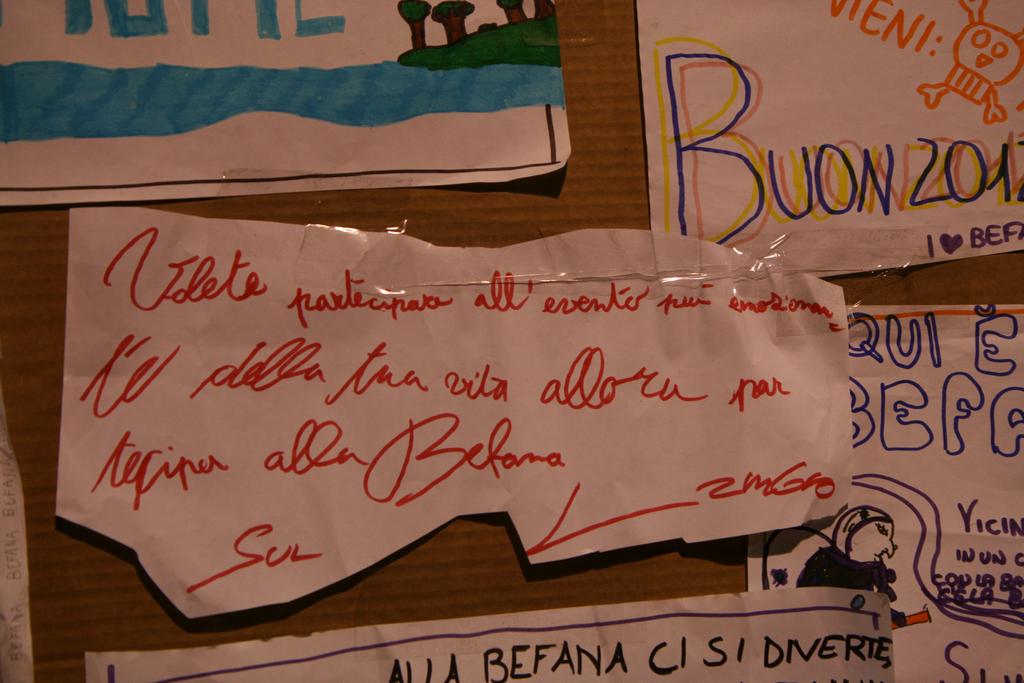 VIENI:
BUON 201
I ♥ BEFA
Volete partecipare all'evento più emozionan=
te della tua vita allora par
tecipa alla Befana
SUL
QUI È
BEFA
VICIN
IN UN C
CON LA BE
BEFANA BEFANA BEFANA
ALLA BEFANA CI SI DIVERTE,